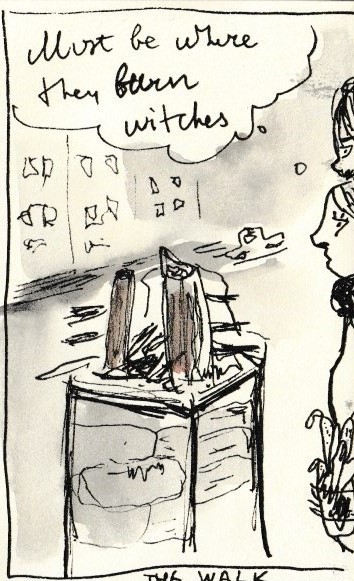 Must be where
they burn
witches
THE WALK